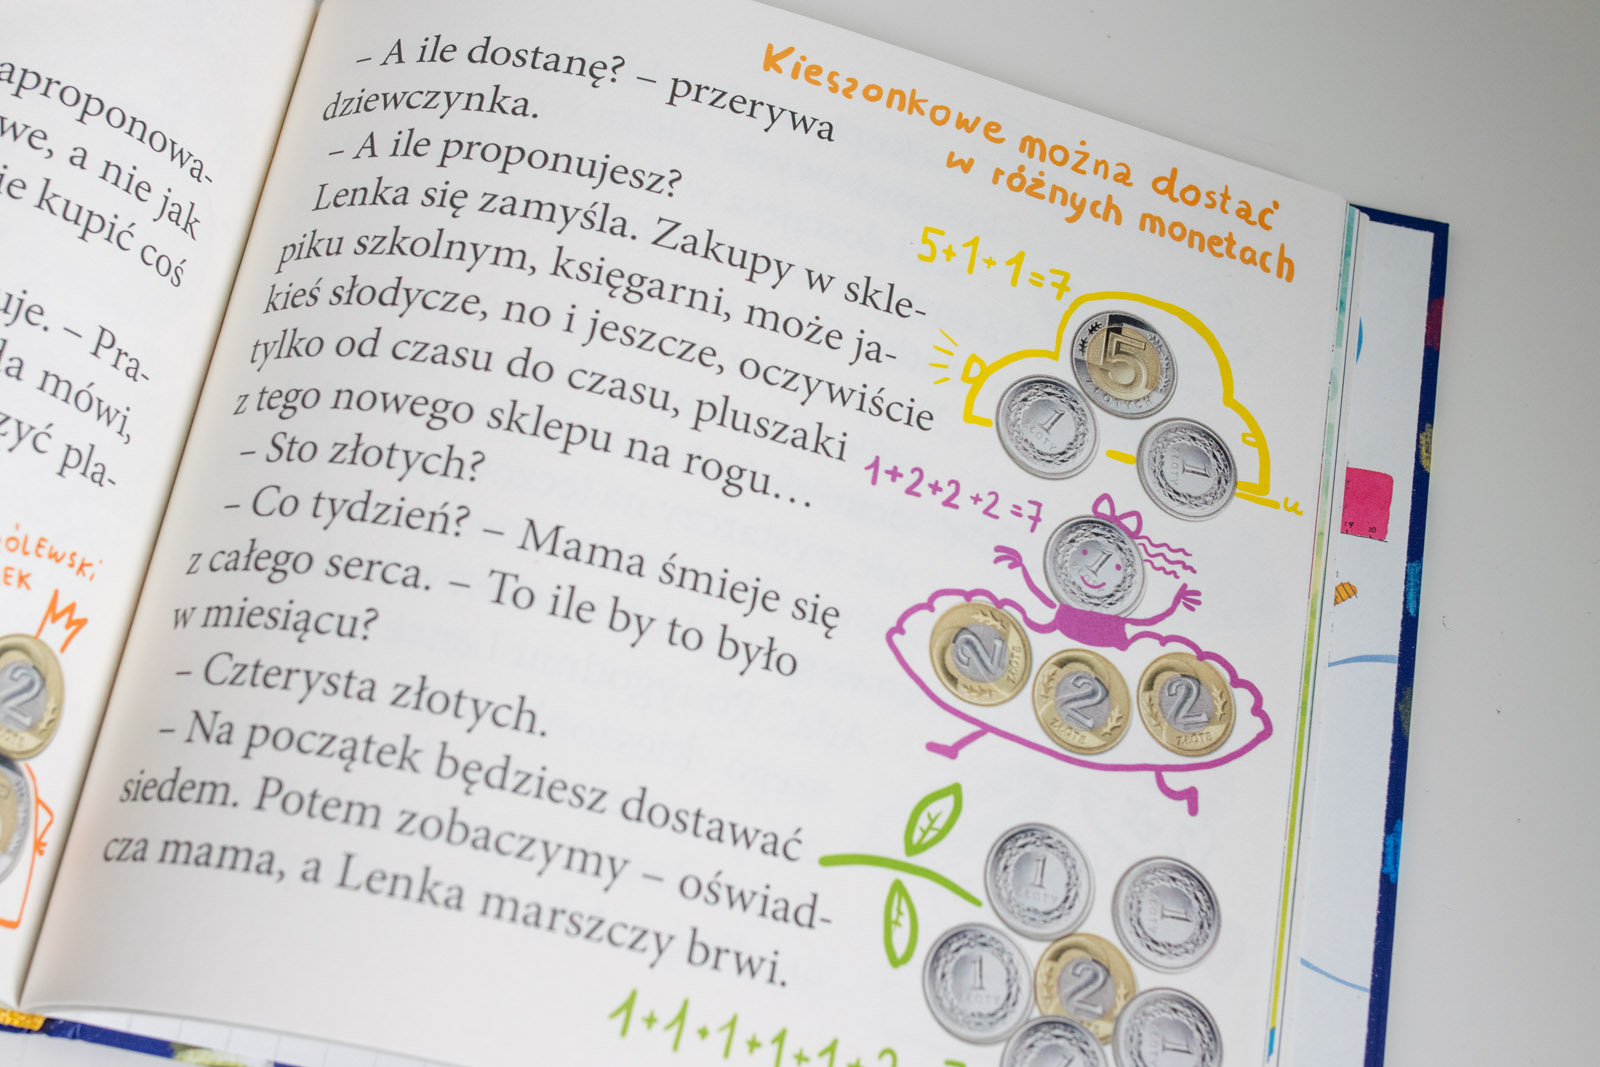 aproponowa-
we, a nie jak
ie kupić coś
uje. – Pra-
la mówi,
zyć pla-
ÓLEWSKI
EK
2
– A ile dostanę? – przerywa
dziewczynka.
– A ile proponujesz?
Lenka się zamyśla. Zakupy w skle-
piku szkolnym, księgarni, może ja-
kieś słodycze, no i jeszcze, oczywiście
tylko od czasu do czasu, pluszaki
z tego nowego sklepu na rogu…
– Sto złotych?
– Co tydzień? – Mama śmieje się
z całego serca. – To ile by to było
w miesiącu?
– Czterysta złotych.
– Na początek będziesz dostawać
siedem. Potem zobaczymy – oświad-
cza mama, a Lenka marszczy brwi.
Kieszonkowe można dostać
w różnych monetach
5+1+1=7
5
ZŁOTYCH
1
ZŁOTY
1
ZŁOTY
1+2+2+2=7
1
2
ZŁOTE
2
ZŁOTE
2
ZŁOTE
1
ZŁOTY
1
ZŁOTY
1
ZŁOTY
2
1
1
1+1+1+1+1+2
19 10